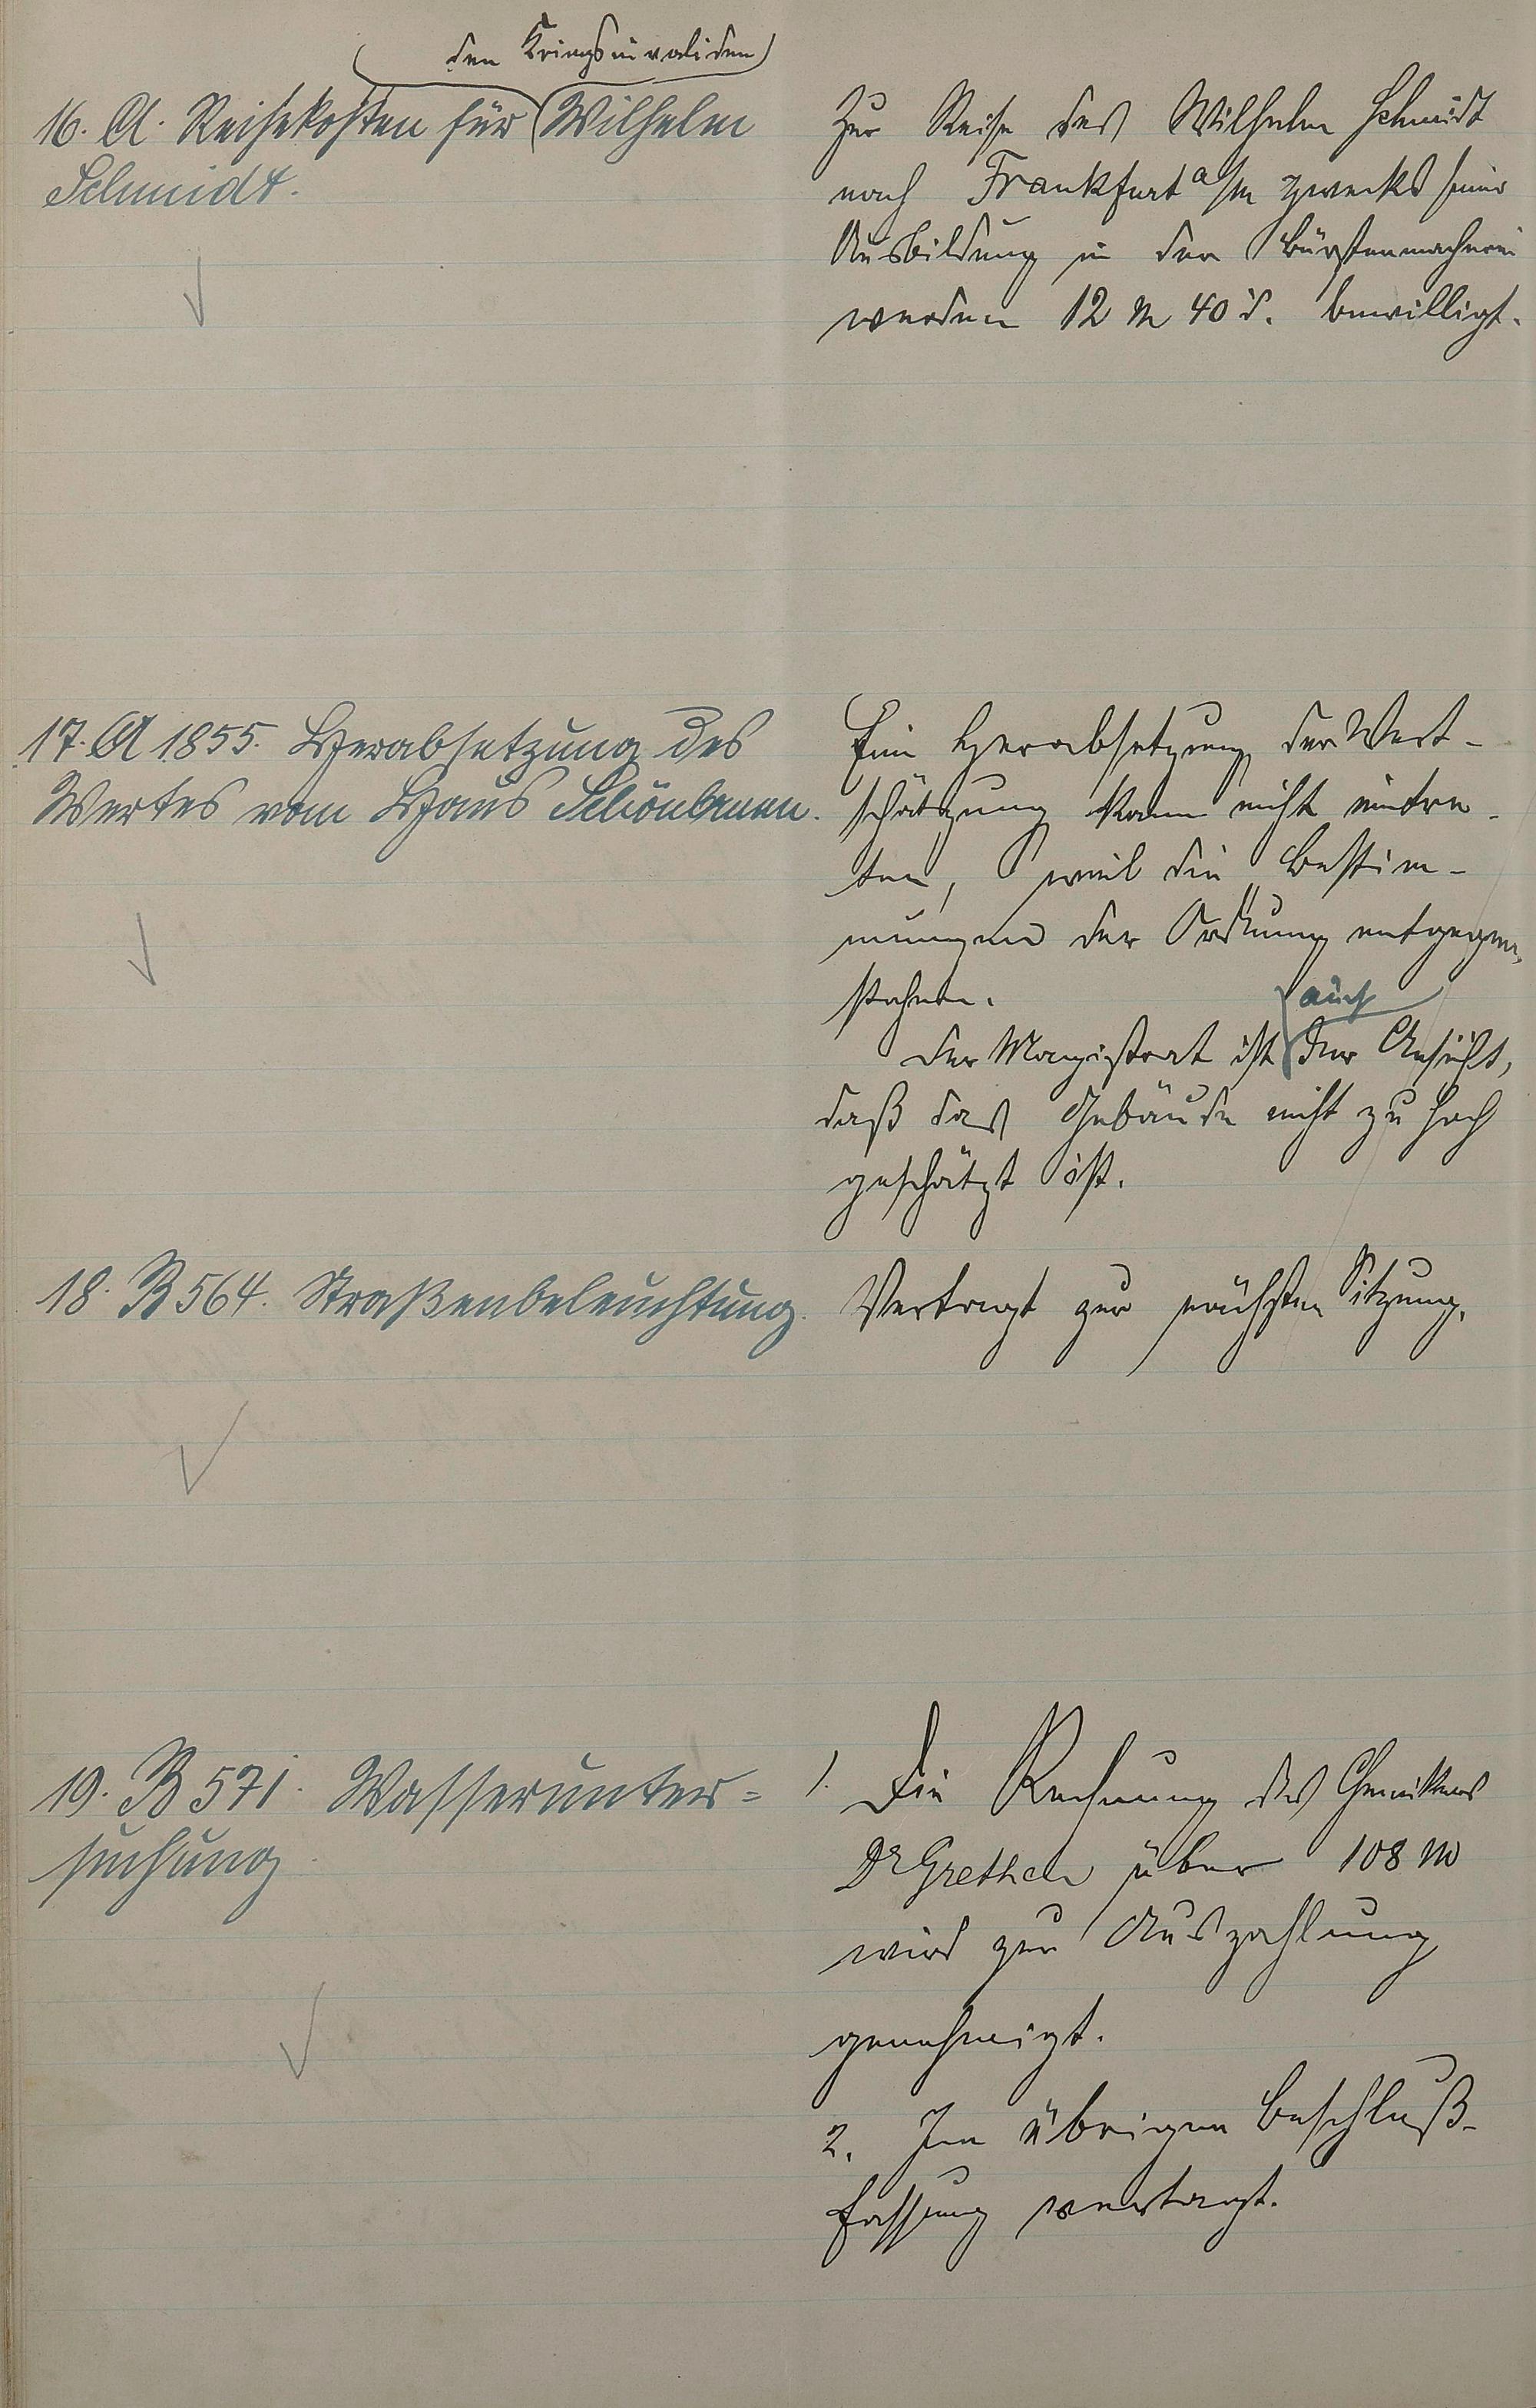 den Kriegsinvaliden
16. A. Reisekosten für Wilhelm
Schmidt.
Zur Reise des Wilhelm Schmidt
nach Frankfurt a/M zwecks seiner
Ausbildung in der Bürstenmacherei
werden 12 M 40 d. bewilligt.
17. A 1855. Herabsetzung des
Wertes vom Haus
Eine Herabsetzung der Wert-
schätzung kann nicht eintre-
ten, weil die Bestim-
mungen der Ordnung entgegen
stehen.
auch
Der Magistrat ist der Ansicht,
daß das Gebäude nicht zu hoch
geschätzt ist.
18. B 564. Straßenbeleuchtung.
Vertagt zur nächsten Sitzung.
19. B 571. Wasserunter=
suchung.
1. Die Rechnung des Chemikers
Dr Grethen über 108 M
wird zur Auszahlung
genehmigt.
2. Im übrigen Beschluß-
fassung vertagt.